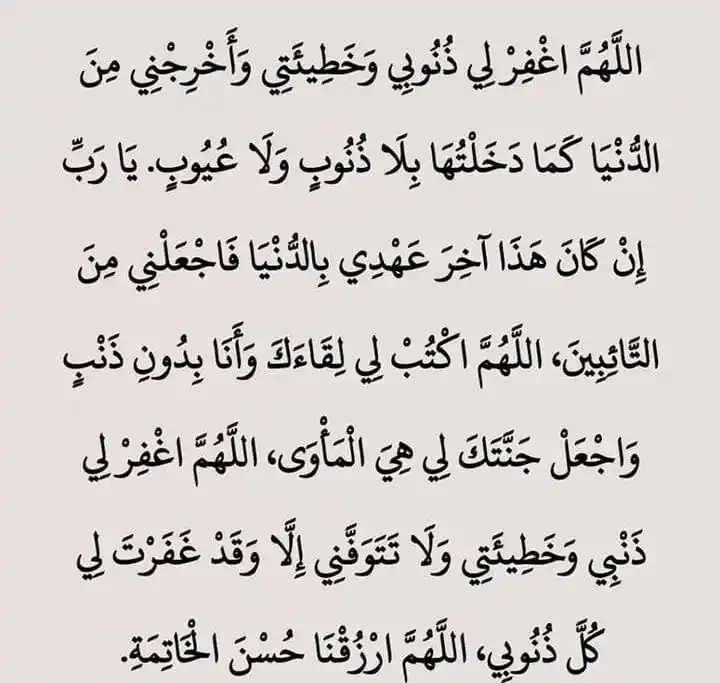 اللَّهُمَّ اغْفِرْ لِي ذُنُوبِي وَخَطِيئَتِي وَأَخْرِجْنِي مِنَ
الدُّنْيَا كَمَا دَخَلْتُهَا بِلَا ذُنُوبٍ وَلَا عُيُوبٍ. يَا رَبِّ
إِنْ كَانَ هَذَا آخِرَ عَهْدِي بِالدُّنْيَا فَاجْعَلْنِي مِنَ
التَّائِبِينَ، اللَّهُمَّ اكْتُبْ لِي لِقَاءَكَ وَأَنَا بِدُونِ ذَنْبٍ
وَاجْعَلْ جَنَّتَكَ لِي هِيَ الْمَأْوَى، اللَّهُمَّ اغْفِرْ لِي
ذَنْبِي وَخَطِيئَتِي وَلَا تَتَوَفَّنِي إِلَّا وَقَدْ غَفَرْتَ لِي
كُلَّ ذُنُوبِي، اللَّهُمَّ ارْزُقْنَا حُسْنَ الْخَاتِمَةِ.